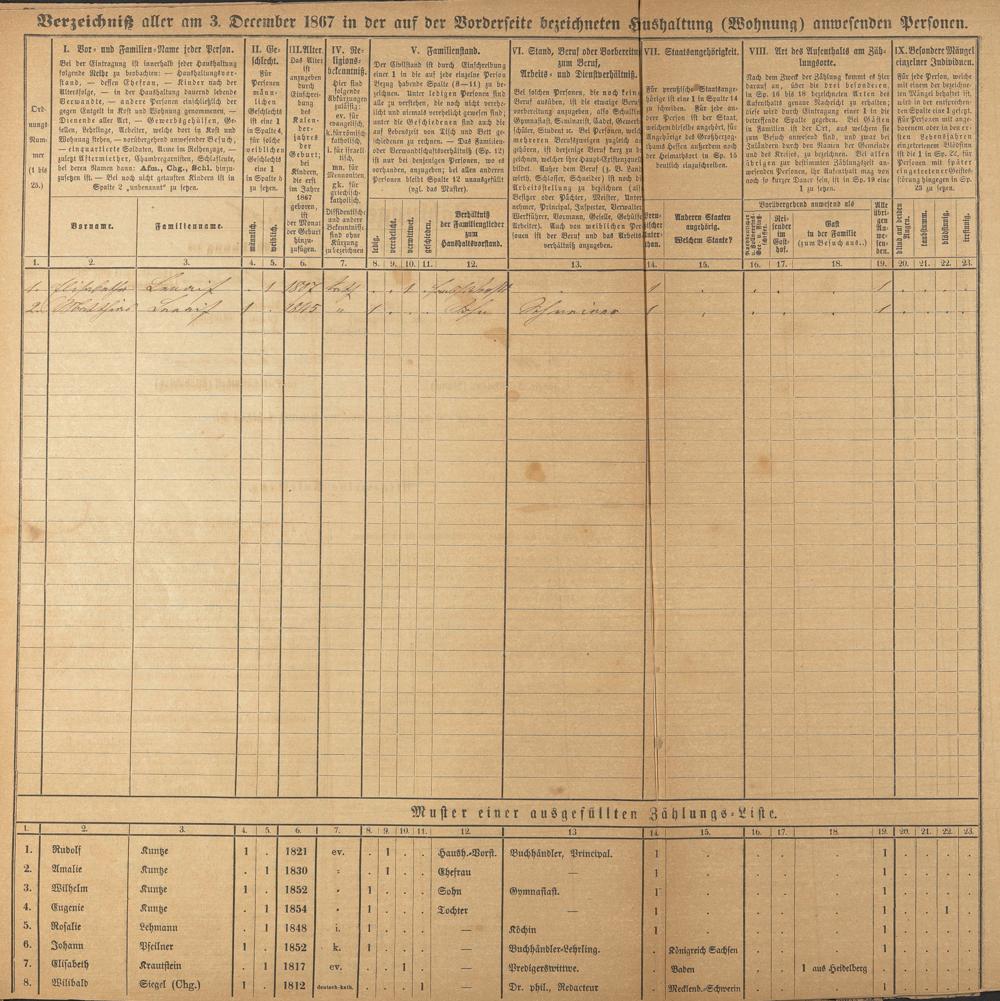 Verzeichniß aller am 3. December 1867 in der auf der Vorderseite bezeichneten Haushaltung (Wohnung) anwesenden Personen.
Ord-
nungs-
Num-
mer
(1 bis
25.)
I. Vor- und Familien-Name jeder Person.
Bei der Eintragung ist innerhalb jeder Haushaltung
folgende Reihe zu beobachten: — Haushaltungsvor-
stand, — dessen Ehefrau, — Kinder nach der
Altersfolge, — in der Haushaltung dauernd lebende
Verwandte, — andere Personen einschließlich der
gegen Entgelt in Kost und Wohnung genommenen, —
Dienende aller Art, — Gewerbsgehülfen, Ge-
sellen, Lehrlinge, Arbeiter, welche dort in Kost und
Wohnung stehen, — vorübergehend anwesender Besuch,
— einquartierte Soldaten, Arme im Reihenzuge, —
zuletzt Aftermiether, Chambregarnisten, Schlafleute,
bei deren Namen dann: Afm., Chg., Schl. hinzu-
zusetzen ist. — Bei noch nicht getauften Kindern ist in
Spalte 2 „unbenannt“ zu setzen.
Vorname.
Familienname.
II. Ge-
schlecht.
Für
Personen
männ-
lichen
Geschlechts
ist eine 1
in Spalte 4,
für solche
weiblichen
Geschlechts
eine 1
in Spalte 5
zu setzen.
männlich.
weiblich.
III. Alter.
Das Alter
ist
anzugeben
durch
Einschrei-
bung
des
Kalen-
der-
jahres
der
Geburt;
bei
Kindern,
die erst
im Jahre
1867
geboren,
ist
der Monat
der Geburt
hinzu-
zufügen.
IV. Re-
ligions-
bekenntniß.
Hier sind
folgende
Abkürzungen
zulässig:
ev. für
evangelisch,
k. für römisch-
katholisch,
i. für israeli-
tisch,
mn. für
Mennoniten
gk. für
griechisch-
katholisch.
Dissidentische
und andere
Bekenntnisse
sind ohne
Kürzung
zu bezeichnen
V. Familienstand.
Der Civilstand ist durch Einschreibung
einer 1 in die auf jede einzelne Person
Bezug habende Spalte (8—11) zu bezeich-
nen. Unter ledigen Personen sind
alle zu verstehen, die noch nicht verehe-
licht und niemals verehelicht gewesen sind;
unter die Geschiedenen sind auch die
auf Lebenszeit von Tisch und Bett ge-
schiedenen zu rechnen. — Das Familien-
oder Verwandtschaftsverhältniß (Sp. 12)
ist nur bei denjenigen Personen, wo es
vorhanden, anzugeben; bei allen anderen
Personen bleibt Spalte 12 unausgefüllt
(vgl. das Muster).
ledig.
verehelicht.
verwittwet.
geschieden.
Verhältniß
der Familienglieder
zum
Haushaltsvorstand.
VI. Stand, Beruf oder Vorbereitung
zum Beruf,
Arbeits- und Dienstverhältniß.
VII. Staatsangehörigkeit.
Für preußische Staatsange-
hörige ist eine 1 in Spalte 14
zu schreiben. Für jede an-
dere Person ist der Staat,
welchem dieselbe angehört, für
Angehörige des Großherzog-
thums Hessen außerdem noch
der Heimathsort in Sp. 15
deutlich einzuschreiben.
Anderen Staaten
angehörig.
Welchem Staate?
VIII. Art des Aufenthalts am Zäh-
lungsorte.
Nach dem Zweck der Zählung kommt es hier
darauf an, über die drei besonderen,
in Sp. 16 bis 18 bezeichneten Arten des
Aufenthalts genaue Nachricht zu erhalten;
diese wird durch Eintragung einer 1 in die
betreffende Spalte gegeben. Bei Gästen
in Familien ist der Ort, aus welchem sie
zum Besuch anwesend sind, und zwar bei
Inländern durch den Namen der Gemeinde
und des Kreises, zu bezeichnen. Bei allen
übrigen zur bestimmten Zählungszeit an-
wesenden Personen, ihr Aufenthalt mag von
noch so kurzer Dauer sein, ist in Sp. 19 eine
1 zu setzen.
Vorübergehend anwesend als
Rei-
sender
im
Gast-
hof.
Gast
in der Familie
(zum Besuch aus..)
Alle
übri-
gen
An-
we-
sen-
den.
IX. Besondere Mängel
einzelner Individuen.
Für jede Person, welche
mit einem der bezeichne-
ten Mängel behaftet ist,
wird in der entsprechen-
den Spalte eine 1 gesetzt.
Für Personen mit ange-
borenem oder in den er-
sten Lebensjahren
eingetretenem Blödsinn
ist die 1 in Sp. 22, für
Personen mit später
eingetretener Geistes-
störung hingegen in Sp.
23 zu setzen.
blind auf beiden
Augen.
taubstumm.
blödsinnig.
irrsinnig.
1. 2. 3. 4. 5. 6. 7. 8. 9. 10. 11. 12. 13. 14. 15. 16. 17. 18. 19. 20. 21. 22. 23.
1. . 1 1807 . . 1 . . 1 . . . . 1 . . . .
2. 1 . 1845 „ 1 . . . Sohn Schneider 1 . . . . 1 . . . .
Muster einer ausgefüllten Zählungs-Liste.
1. 2. 3. 4. 5. 6. 7. 8. 9. 10. 11. 12. 13 14. 15. 16. 17. 18. 19. 20. 21. 22. 23.
1. Rudolf Kuntze 1 . 1821 ev. . 1 . . Haush.-Vorst. Buchhändler, Principal. 1 . . . . 1 . . . .
2. Amalie Kuntze . 1 1830 " . 1 . . Ehefrau — 1 . . . . 1 . . . .
3. Wilhelm Kuntze 1 . 1852 " 1 . . . Sohn Gymnasiast. 1 . . . . 1 . . . .
4. Eugenie Kuntze . 1 1854 " 1 . . . Tochter — 1 . . . . 1 . . 1 .
5. Rosalie Lehmann . 1 1848 i. 1 . . . — Köchin 1 . . . . 1 . . . .
6. Johann Pfeilner 1 . 1852 k. 1 . . . — Buchhändler-Lehrling. . Königreich Sachsen . . . 1 . . . .
7. Elisabeth Krautstein . 1 1817 ev. . . 1 . — Predigerswittwe. . Baden . . 1 aus Heidelberg . . . . .
8. Willibald Siegel (Chg.) 1 . 1812 deutsch-kath. . . . 1 — Dr. phil., Redacteur . Mecklenb.-Schwerin . . . 1 . . . .